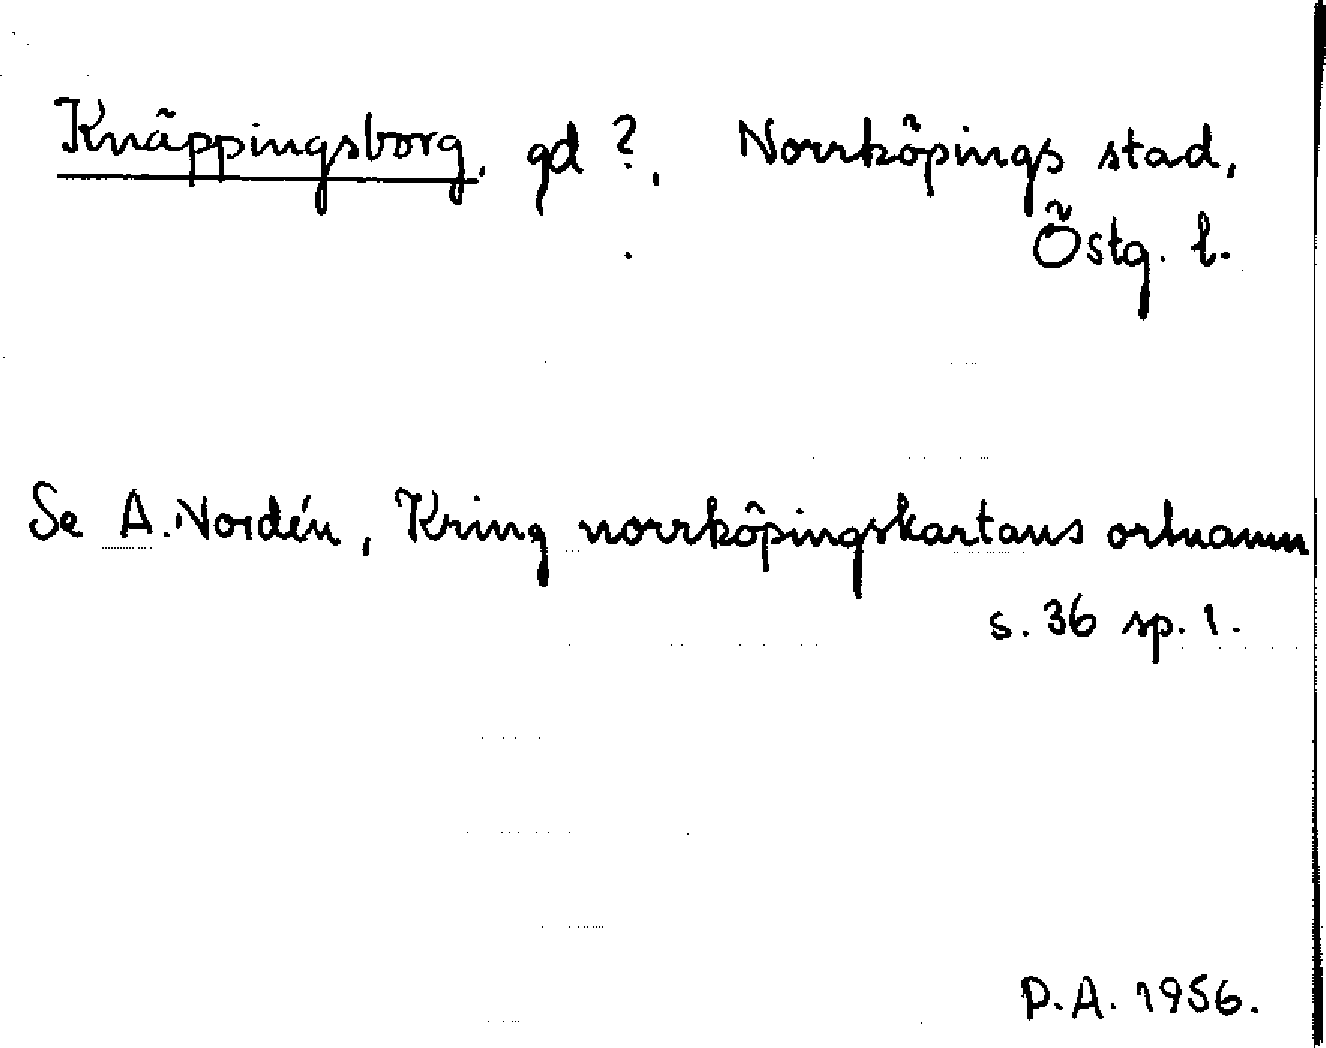 Knäppingsborg, gd ?, Norrköpings stad,
Östg. l.
Se A. Nordén, Kring norrköpingskartans ortnamn
s. 36 sp. 1.
P.A. 1956.